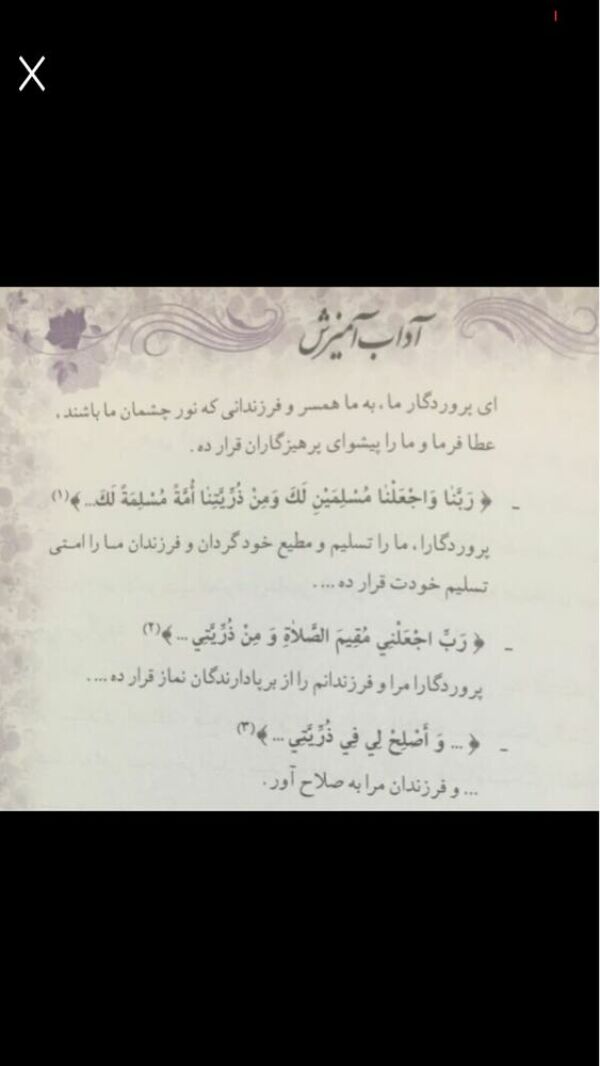 آداب آمیزش
ای پروردگار ما، به ما همسر و فرزندانی که نور چشمان ما باشند،
عطا فرما و ما را پیشوای پرهیزگاران قرار ده.
ـ ﴿رَبَّنٰا وَاجْعَلْنٰا مُسْلِمَيْنِ لَكَ وَمِنْ ذُرِّيَّتِنٰا أُمَّةً مُسْلِمَةً لَكَ...﴾(۱)
پروردگارا، ما را تسلیم و مطیع خود گردان و فرزندان ما را امتی
تسلیم خودت قرار ده....
ـ ﴿رَبِّ اجْعَلْنِي مُقِيمَ الصَّلاٰةِ وَ مِنْ ذُرِّيَّتِي ...﴾(۲)
پروردگارا مرا و فرزندانم را از برپادارندگان نماز قرار ده....
ـ ﴿... وَ أَصْلِحْ لِي فِي ذُرِّيَّتِي ...﴾(۳)
... و فرزندان مرا به صلاح آور.